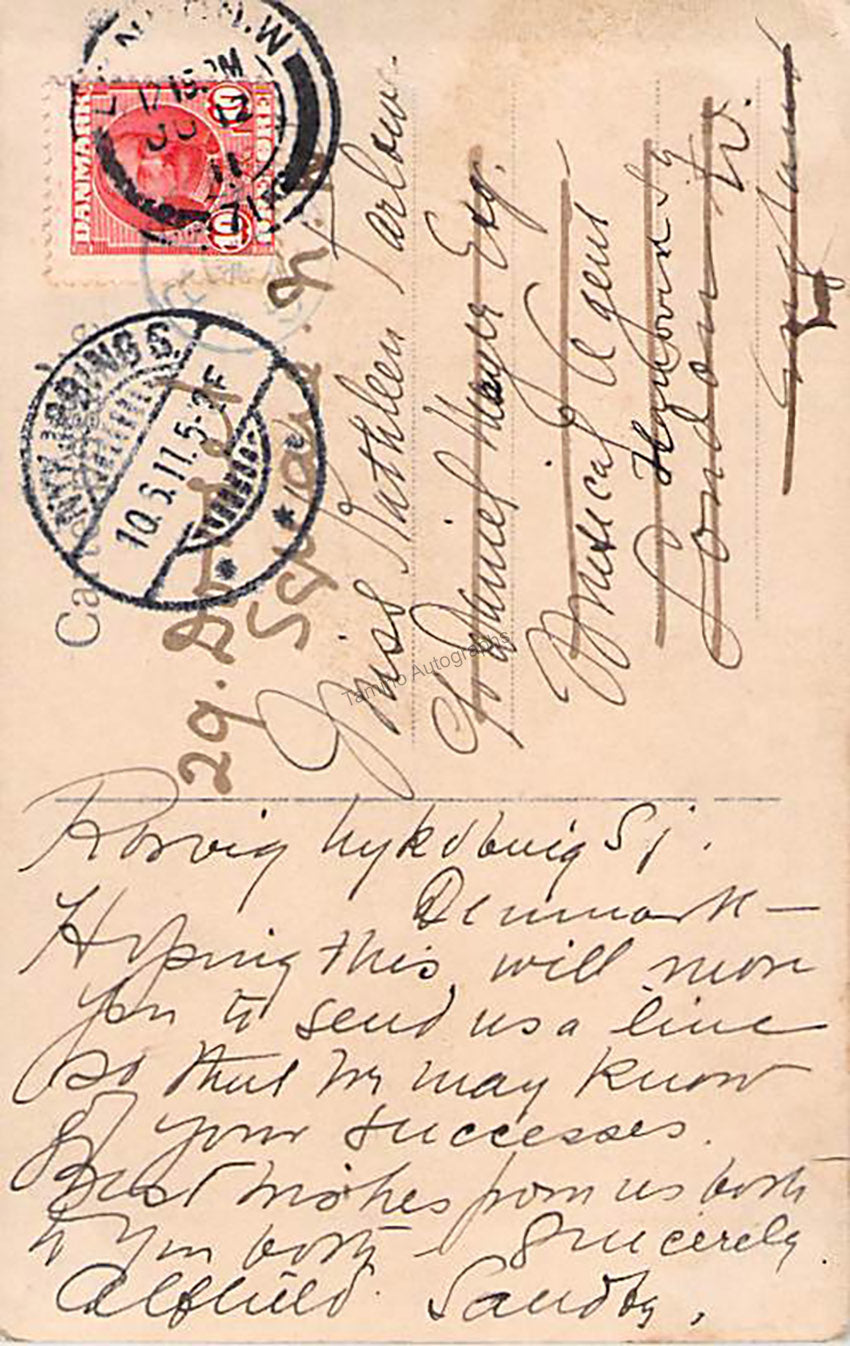 DANMARK
10
10
NYKJØBING S.
10.6.11.5-2E
Carte
29.
Square. N.W
Miss Kathleen Parlow.
c/o Daniel Mayer Esq.
Musical Agent
Hanover Sq
London W.
England
Tamino Autographs
Rorvig Nykobing Sj.
Denmark —
Hoping this will move
you to send us a line
so that we may know
of your successes.
Best wishes from us both
to you both — Sincerely.
Alfhild. Sandby.